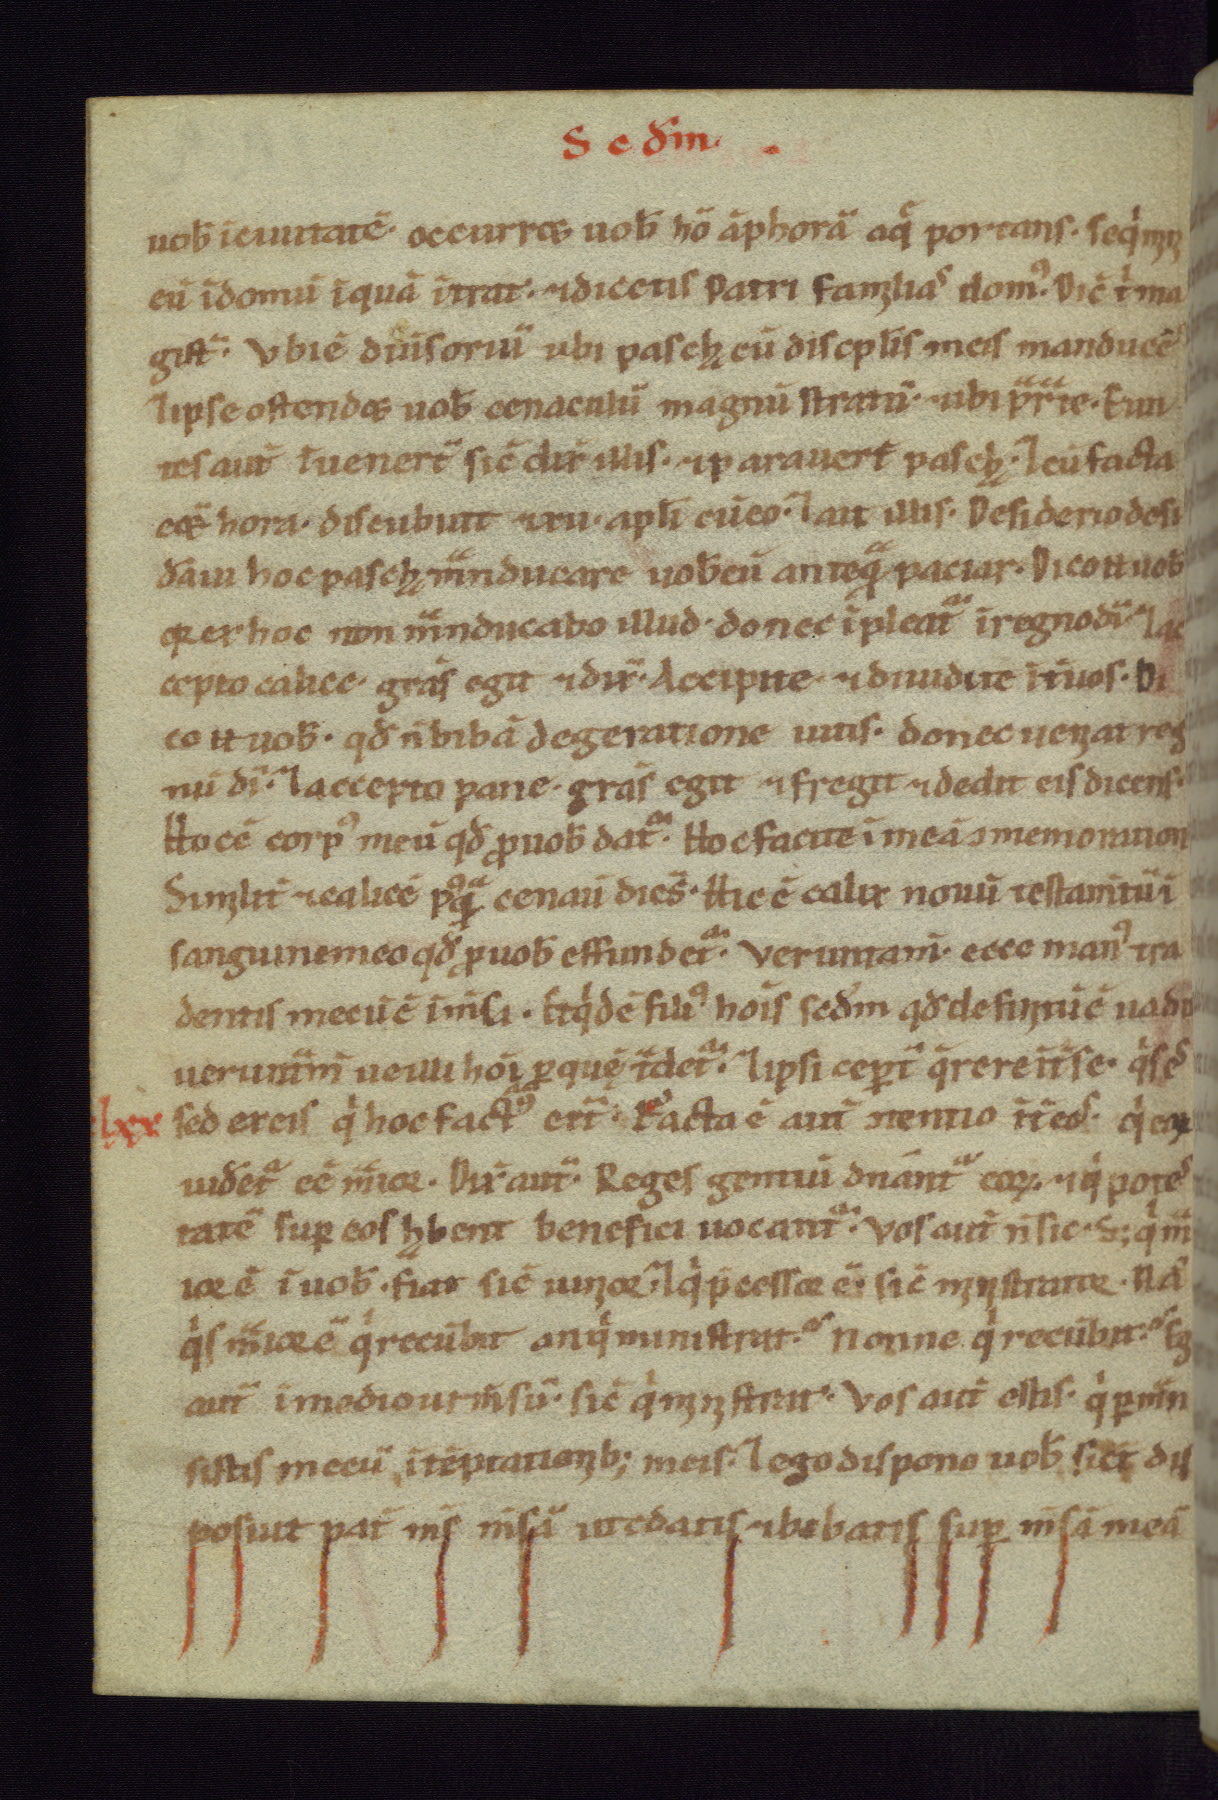 Scdm̄.
uob̄ ī ciuitatē· occurret uob̄ hō āphorā aq̄ portans· seq̇mīni
eū ī domū ī quā ītrat· ⁊ dicetis Patri familias dom᷒· Dic̄ t̄ ma
gist̄· Vbi ē diuīsoriū ubi pascha cū discplis meis manducē
⁊ ipse ostendet uob̄ cenaculū magnū stratū· ⁊ ubi pr̄ıe· Eun
tes aut̄ īuenert̄ sic̄ dix̄ illis· ⁊ parauert̄ pascha· ⁊ cū facta
eēt hora· discubuit ⁊ xii· apl̄i cū eo· ⁊ ait illis· Desiderio desi
d̄aui hoc pascha m̄nducare uob̄cū anteq̄ paciar· Dico n̄ uob̄
q̄ ex hoc non m̄nducabo illud· donec īpleat̄ ī regno dī· ⁊ ac
cepto calice· grās egit ⁊ dix̄· Accipite ⁊ diuidite īt̄ uos· Di
co n̄ uob̄· qd̄ n̄ bibā de geratione uitis· donec ueniat reg
nū dī· ⁊ accepto pane· grās egit ⁊ fregit ⁊ dedit eis dicens·
Hoc ē corp᷒ meū qd̄ ꝓ uob̄ dat̄· Hoc facite ī meā ɔmemoration
Similit̄ ⁊ calicē p᷒q̄ cenauı dicēs· Hic ē calix nouū testam̄tū ī
sanguine meo qd̄ ꝓ uob̄ effundet̄· Verumtam̄· ecce man᷒ tra
dentis mecū ē ī m̄sa· Et q̇dē fili᷒ hoīs scdm̄ qd̄ definitū ē uadit
uerumtm̄ ue illi hoī ꝑ quē t̄det̄· ⁊ ipsi cepert̄ q̄rere īt̄ se· q̇s eēt
lxx sed ex eis q̇ hoc fact᷒ ert̄· Facta ē aut̄ ɔtentio īt̄ eos· q̇s eoꝝ
uidet̄ eē m̄ior· Dix̄ aut̄· Reges gentiū dnānt̄ eoꝝ· ⁊ q̇ potes
tatē suꝑ eos habent benefici uocant̄· Vos aut̄ n̄ sic· S; q̇ m̄
ior ē ī uob̄· fiat sic̄ iunior· ⁊ q̇ p̄cessor ē· sic̄ ministrator· Nā
q̇s m̄ior ē q̇ recūbit an q̇ ministrat· Nonne q̇ recūbit· Ego
aut̄ ī medio ur̄m sū· sic̄ q̇ ministrat· Vos aut̄ estis· q̇ ꝑmn̄
sistis mecū ī tēptationib; meis· ⁊ ego dispono uob̄ sic̄t dis
posuit pat̄ m̄s m̄sā ut edatis ⁊ bibatis suꝑ m̄sā meā